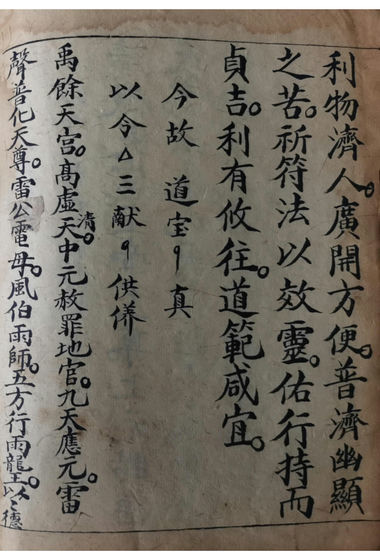 利物濟人。廣開方便。普濟幽顯
之苦。祈符法以效靈。佑行持而
貞吉。利有攸往。道範咸宜。
今故 道宝〻真
以今△三献〻供養
禹餘天宫。高虚清。天中元赦罪地官。九天應元。雷
聲普化天尊。雷公電母。風伯雨師。五方行雨龍王。以〻德